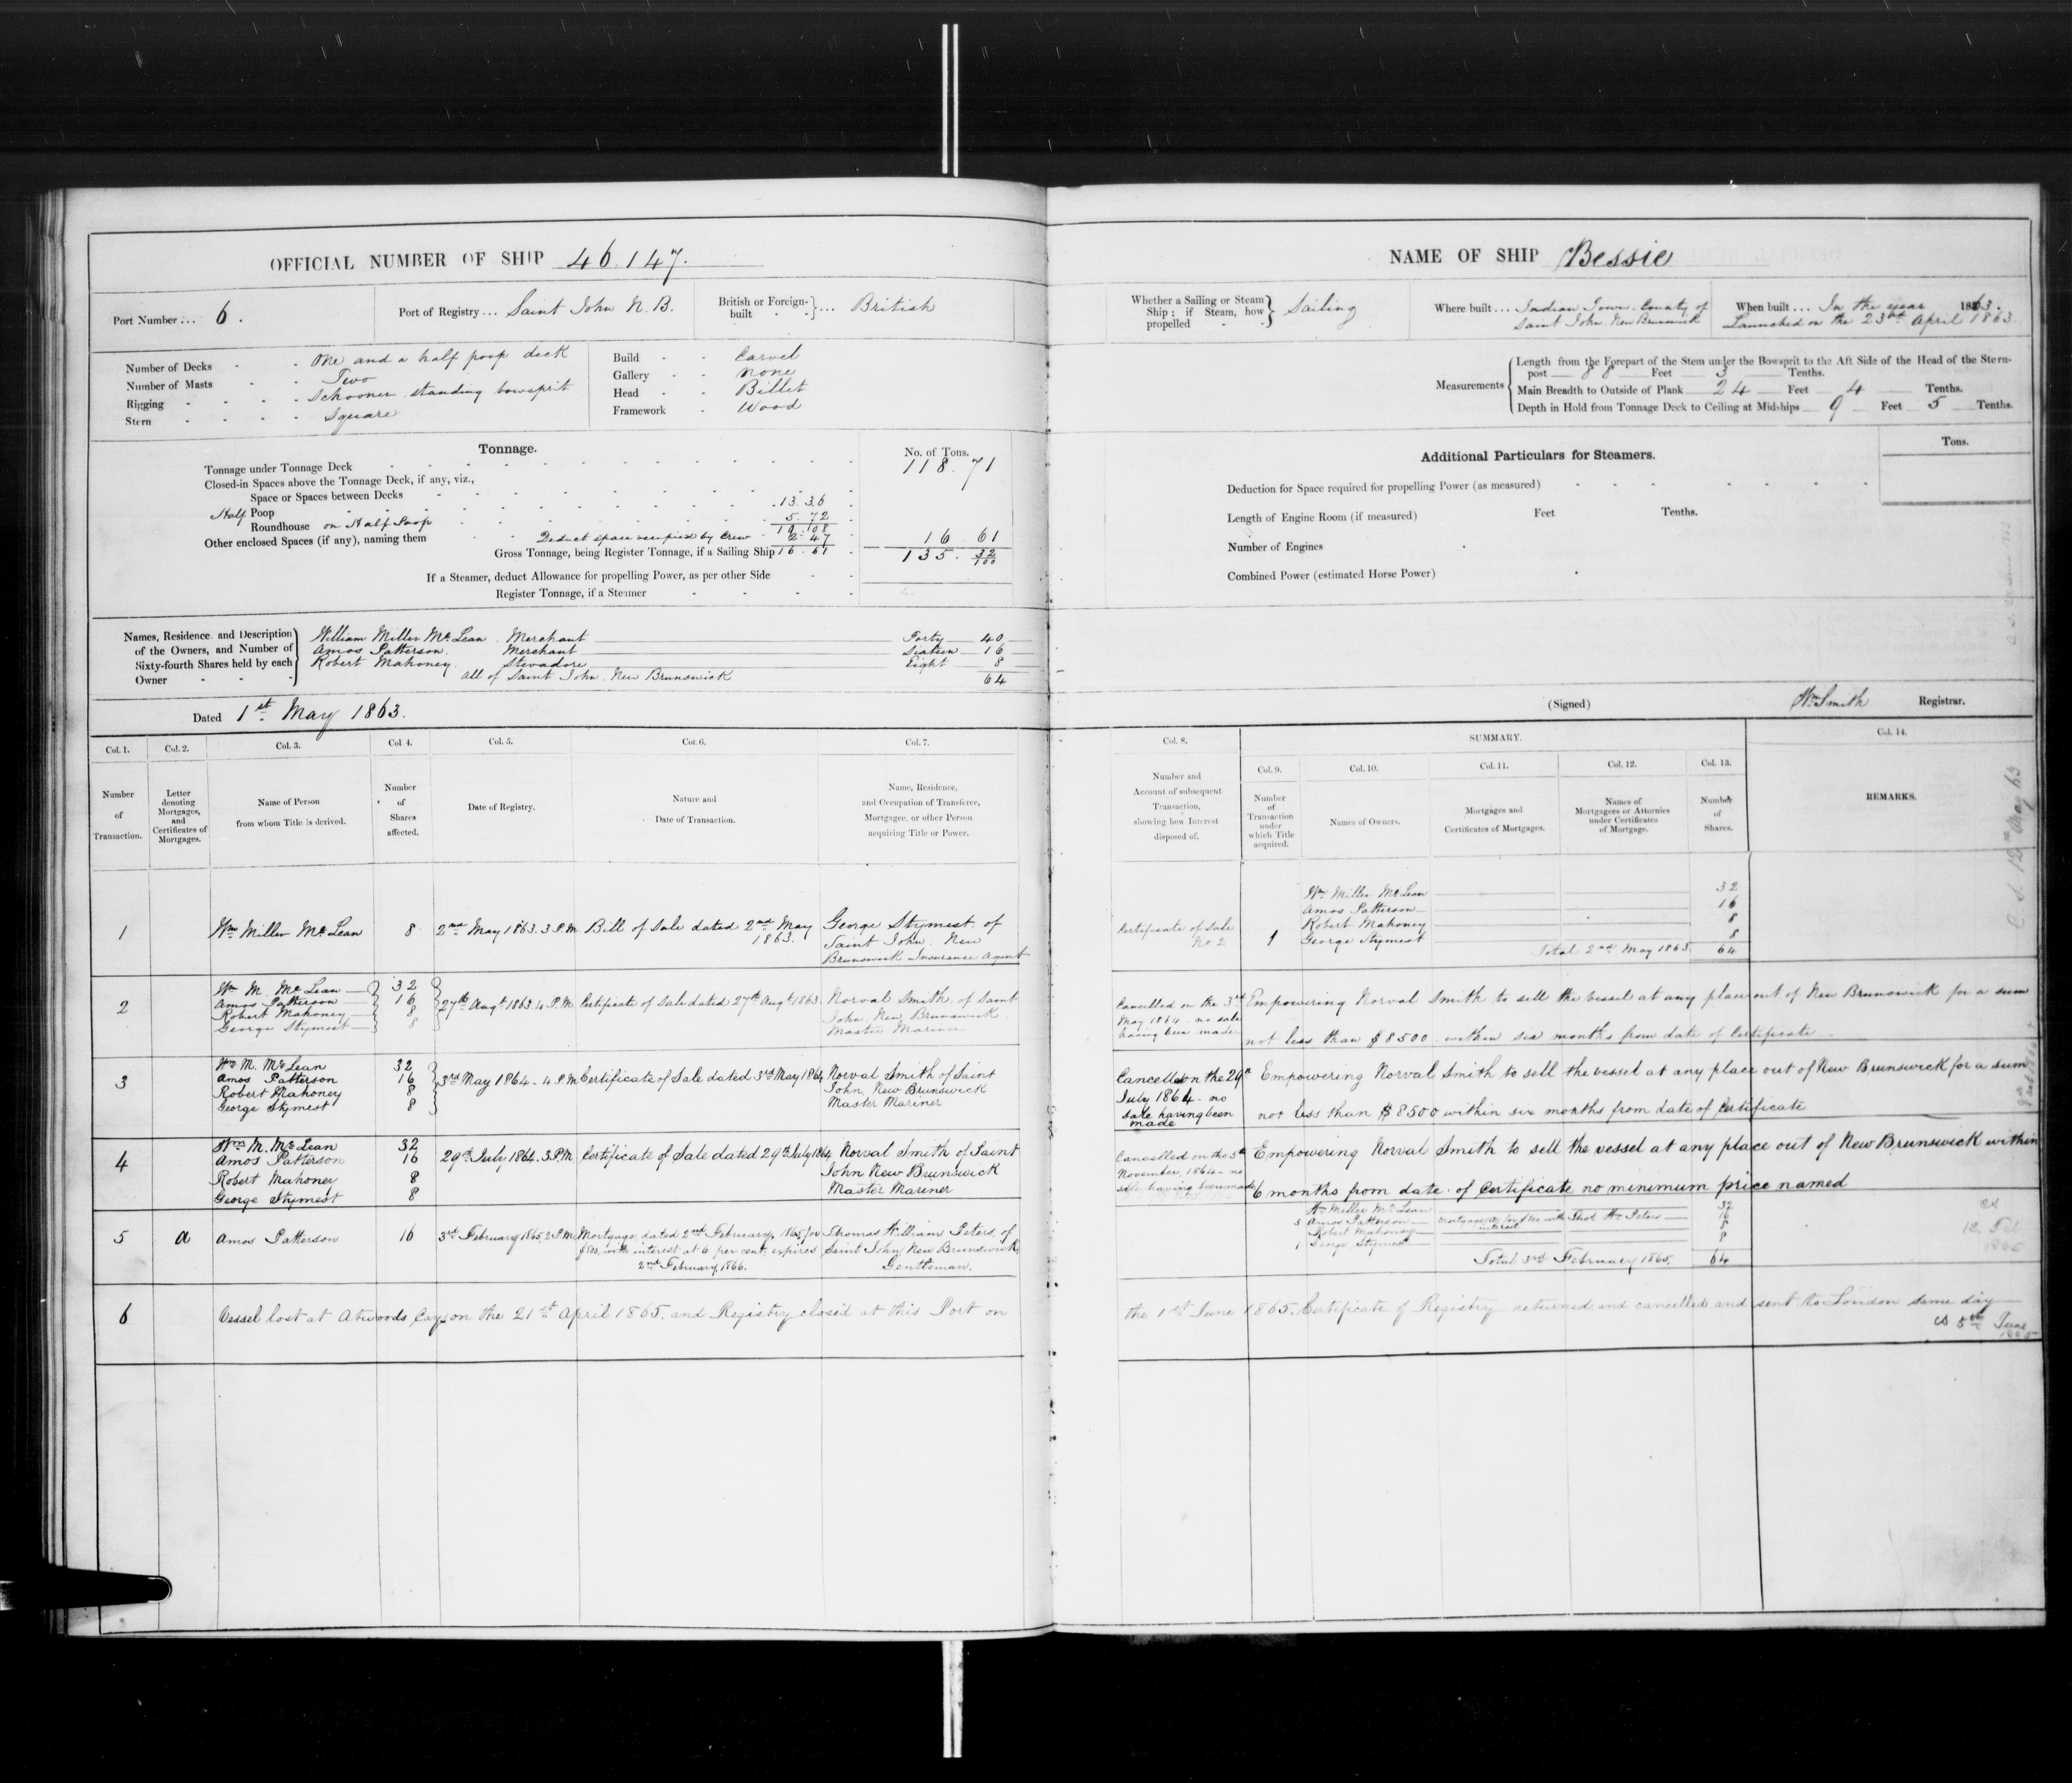 OFFICIAL NUMBER OF SHIP 46.147.
Port Number ... 6.
Port of Registry ... Saint John N.B.
British or Foreign-built } ... British
Number of Decks - - One and a half poop deck
Number of Masts - - Two
Rigging - - - - Schooner standing bowsprit
Stern - - - - Square
Build - - Carvel
Gallery - - None
Head - - Billet
Framework - Wood
Tonnage.
No. of Tons.
Tonnage under Tonnage Deck 118.71
Closed-in Spaces above the Tonnage Deck, if any, viz.,
Space or Spaces between Decks
Half Poop 13.36
Roundhouse on Half Poop 5.72
19.08
Other enclosed Spaces (if any), naming them Deduct space occupied by Crew 2.47 16.61
Gross Tonnage, being Register Tonnage, if a Sailing Ship 16.61 135. 32/100
If a Steamer, deduct Allowance for propelling Power, as per other Side
Register Tonnage, if a Steamer
Names, Residence and Description of the Owners, and Number of Sixty-fourth Shares held by each Owner
William Miller McLean. Merchant Forty 40
Amos Patterson. Merchant Sixteen 16
Robert Mahoney. Stevadore Eight 8
all of Saint John. New Brunswick 64
Dated 1st May 1863.
Col. 1. Col. 2. Col. 3. Col. 4. Col. 5. Col. 6. Col. 7.
Number of Transaction.
Letter denoting Mortgages, and Certificates of Mortgages.
Name of Person from whom Title is derived.
Number of Shares affected.
Date of Registry.
Nature and Date of Transaction.
Name, Residence, and Occupation of Transferee, Mortgagee, or other Person acquiring Title or Power.
1 Wm Miller McLean 8 2nd May 1863. 3 P.M. Bill of Sale dated 2nd May 1863.
George Stymest of
Saint John. New
Brunswick Insurance Agent
2 Wm M. McLean 32
Amos Patterson 16
Robert Mahoney 8
George Stymest 8
27th Augt 1863. 4 P.M. Certificate of Sale dated 27th Augt 1863.
Norval Smith. of Saint
John, New Brunswick
Master Mariner
3 Wm M. McLean 32
Amos Patterson 16
Robert Mahoney 8
George Stymest 8
3rd May 1864 - 4 P.M. Certificate of Sale dated 3rd May 1864
Norval Smith of Saint
John, New Brunswick
Master Mariner
4 Wm M. McLean 32
Amos Patterson 16
Robert Mahoney 8
George Stymest 8
29th July 1864. 3 P.M. Certificate of Sale dated 29th July 1864
Norval Smith of Saint
John New Brunswick
Master Mariner
5 A Amos Patterson 16 3rd February 1865 2 P.M.
Mortgage dated 2nd February, 1865 for
with interest at 6 per cent, expires
2nd February, 1866.
Thomas William Peters of
Saint John, New Brunswick,
Gentleman.
6 Vessel lost at Atwoods Cay, on the 21st April 1865. and Registry closed at this Port on
NAME OF SHIP Bessie
Whether a Sailing or Steam Ship; if Steam, how propelled } Sailing
Where built ... Indian Town. County of
Saint John. New Brunswick
When built ... In the year 1863.
Launched on the 23rd April 1863.
Measurements
Length from the Forepart of the Stem under the Bowsprit to the Aft Side of the Head of the Stern-
post 88 Feet 3 Tenths.
Main Breadth to Outside of Plank 24 Feet 4 Tenths.
Depth in Hold from Tonnage Deck to Ceiling at Midships 9 Feet 5 Tenths.
Additional Particulars for Steamers.
Tons.
Deduction for Space required for propelling Power (as measured)
Length of Engine Room (if measured) Feet Tenths.
Number of Engines
Combined Power (estimated Horse Power)
(Signed) Wm Smith Registrar.
Col. 8. SUMMARY. Col. 14.
Col. 9. Col. 10. Col. 11. Col. 12. Col. 13.
Number and Account of subsequent Transaction, showing how Interest disposed of.
Number of Transaction under which Title acquired.
Names of Owners.
Mortgages and Certificates of Mortgages.
Names of Mortgagees or Attornies under Certificates of Mortgage.
Number of Shares.
REMARKS.
C.S. 12th May 63
Certificate of Sale
No 2
1
Wm Miller McLean 32
Amos Patterson 16
Robert Mahoney 8
George Stymest 8
Total 2nd May 1863 64
Cancelled on the 3rd
May 1864 - no sale
having been made
Empowering Norval Smith to sell the vessel at any place out of New Brunswick for a sum
not less than $8500 within six months from date of Certificate
Cancelled on the 29th
July 1864 - no
sale having been
made
Empowering Norval Smith to sell the vessel at any place out of New Brunswick for a sum
not less than $8500 within six months from date of Certificate
Cancelled on the 5th
November, 1864 - no
sale having been made
Empowering Norval Smith to sell the vessel at any place out of New Brunswick within
6 months from date of Certificate no minimum price named
Wm Miller McLean 32
5 Amos Patterson Mortgage with interest Thos. Wm Peters 16
Robert Mahoney 8
1 George Stymest 8
Total 3rd February 1865. 64
CS
12 Feb
1865
the 1st June 1865. Certificate of Registry returned and cancelled and sent to London same day
CS 5th June
1865